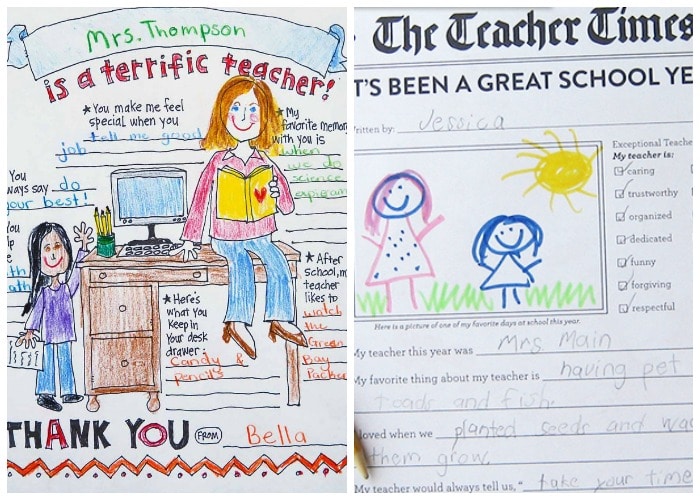 Mrs. Thompson
is a terrific teacher!
★You make me feel
special when you
tell me good
job
★My
favorite memor
with you is
when
we do
science
You
ways say do
your best!
You
★Here's
what you
keep in
your desk
drawer
Candy &
pencils
★After
school, m
teacher
likes to
watch
the
Green
Bay
THANK YOU FROM Bella
The Teacher Times
T'S BEEN A GREAT SCHOOL YE
ritten by: Jessica
Exceptional Teache
My teacher is:
caring
trustworthy
organized
dedicated
funny
forgiving
respectful
Here is a picture of one of my favorite days at school this year.
My teacher this year was Mrs Main
My favorite thing about my teacher is having pet
toads and fish.
loved when we planted seeds and wa
them grow.
My teacher would always tell us, " take your time